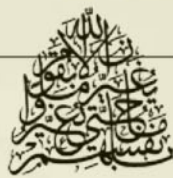 إن الله لا
يغير ما بقوم
حتى يغيروا
ما بأنفسهم